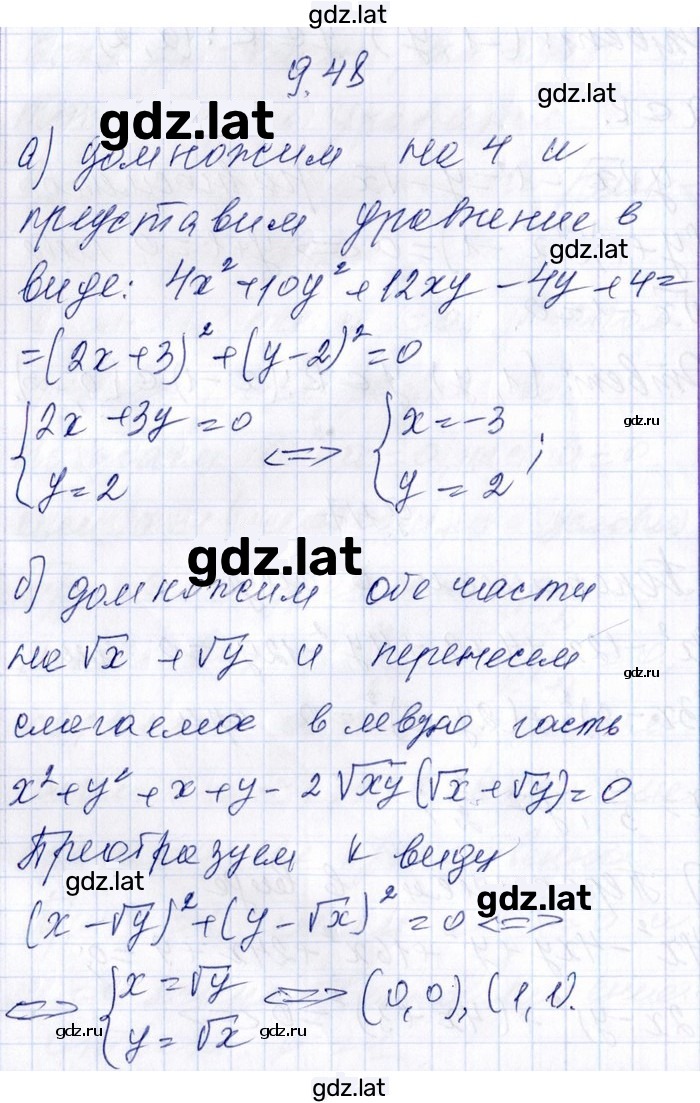 gdz.lat
9.48
gdz.lat
gdz.lat
а) домножим на 4 и
представим уравнение в
gdz.lat
виде: 4x²+10y²+12xy-4y+4=
=(2x+3)²+(y-2)²=0
{2x+3y=0 <=> {x=-3
gdz.ru
y=2 y=2;
gdz.lat
б) домножим обе части
на √x+√y и перенесем
gdz.ru
слагаемое в левую часть
x²+y²+x+y-2√xy(√x+√y)=0
Преобразуем к виду
gdz.lat
gdz.lat
(x-√y)²+(y-√x)²=0<=>
<=> {x=√y <=> (0,0),(1,1).
y=√x
gdz.ru
gdz.ru
gdz.ru
gdz.lat